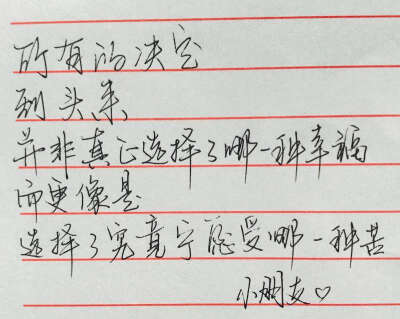 所有的决定
到头来
并非真正选择了哪一种幸福
而更像是
选择了究竟宁愿受哪一种苦
小朋友♡